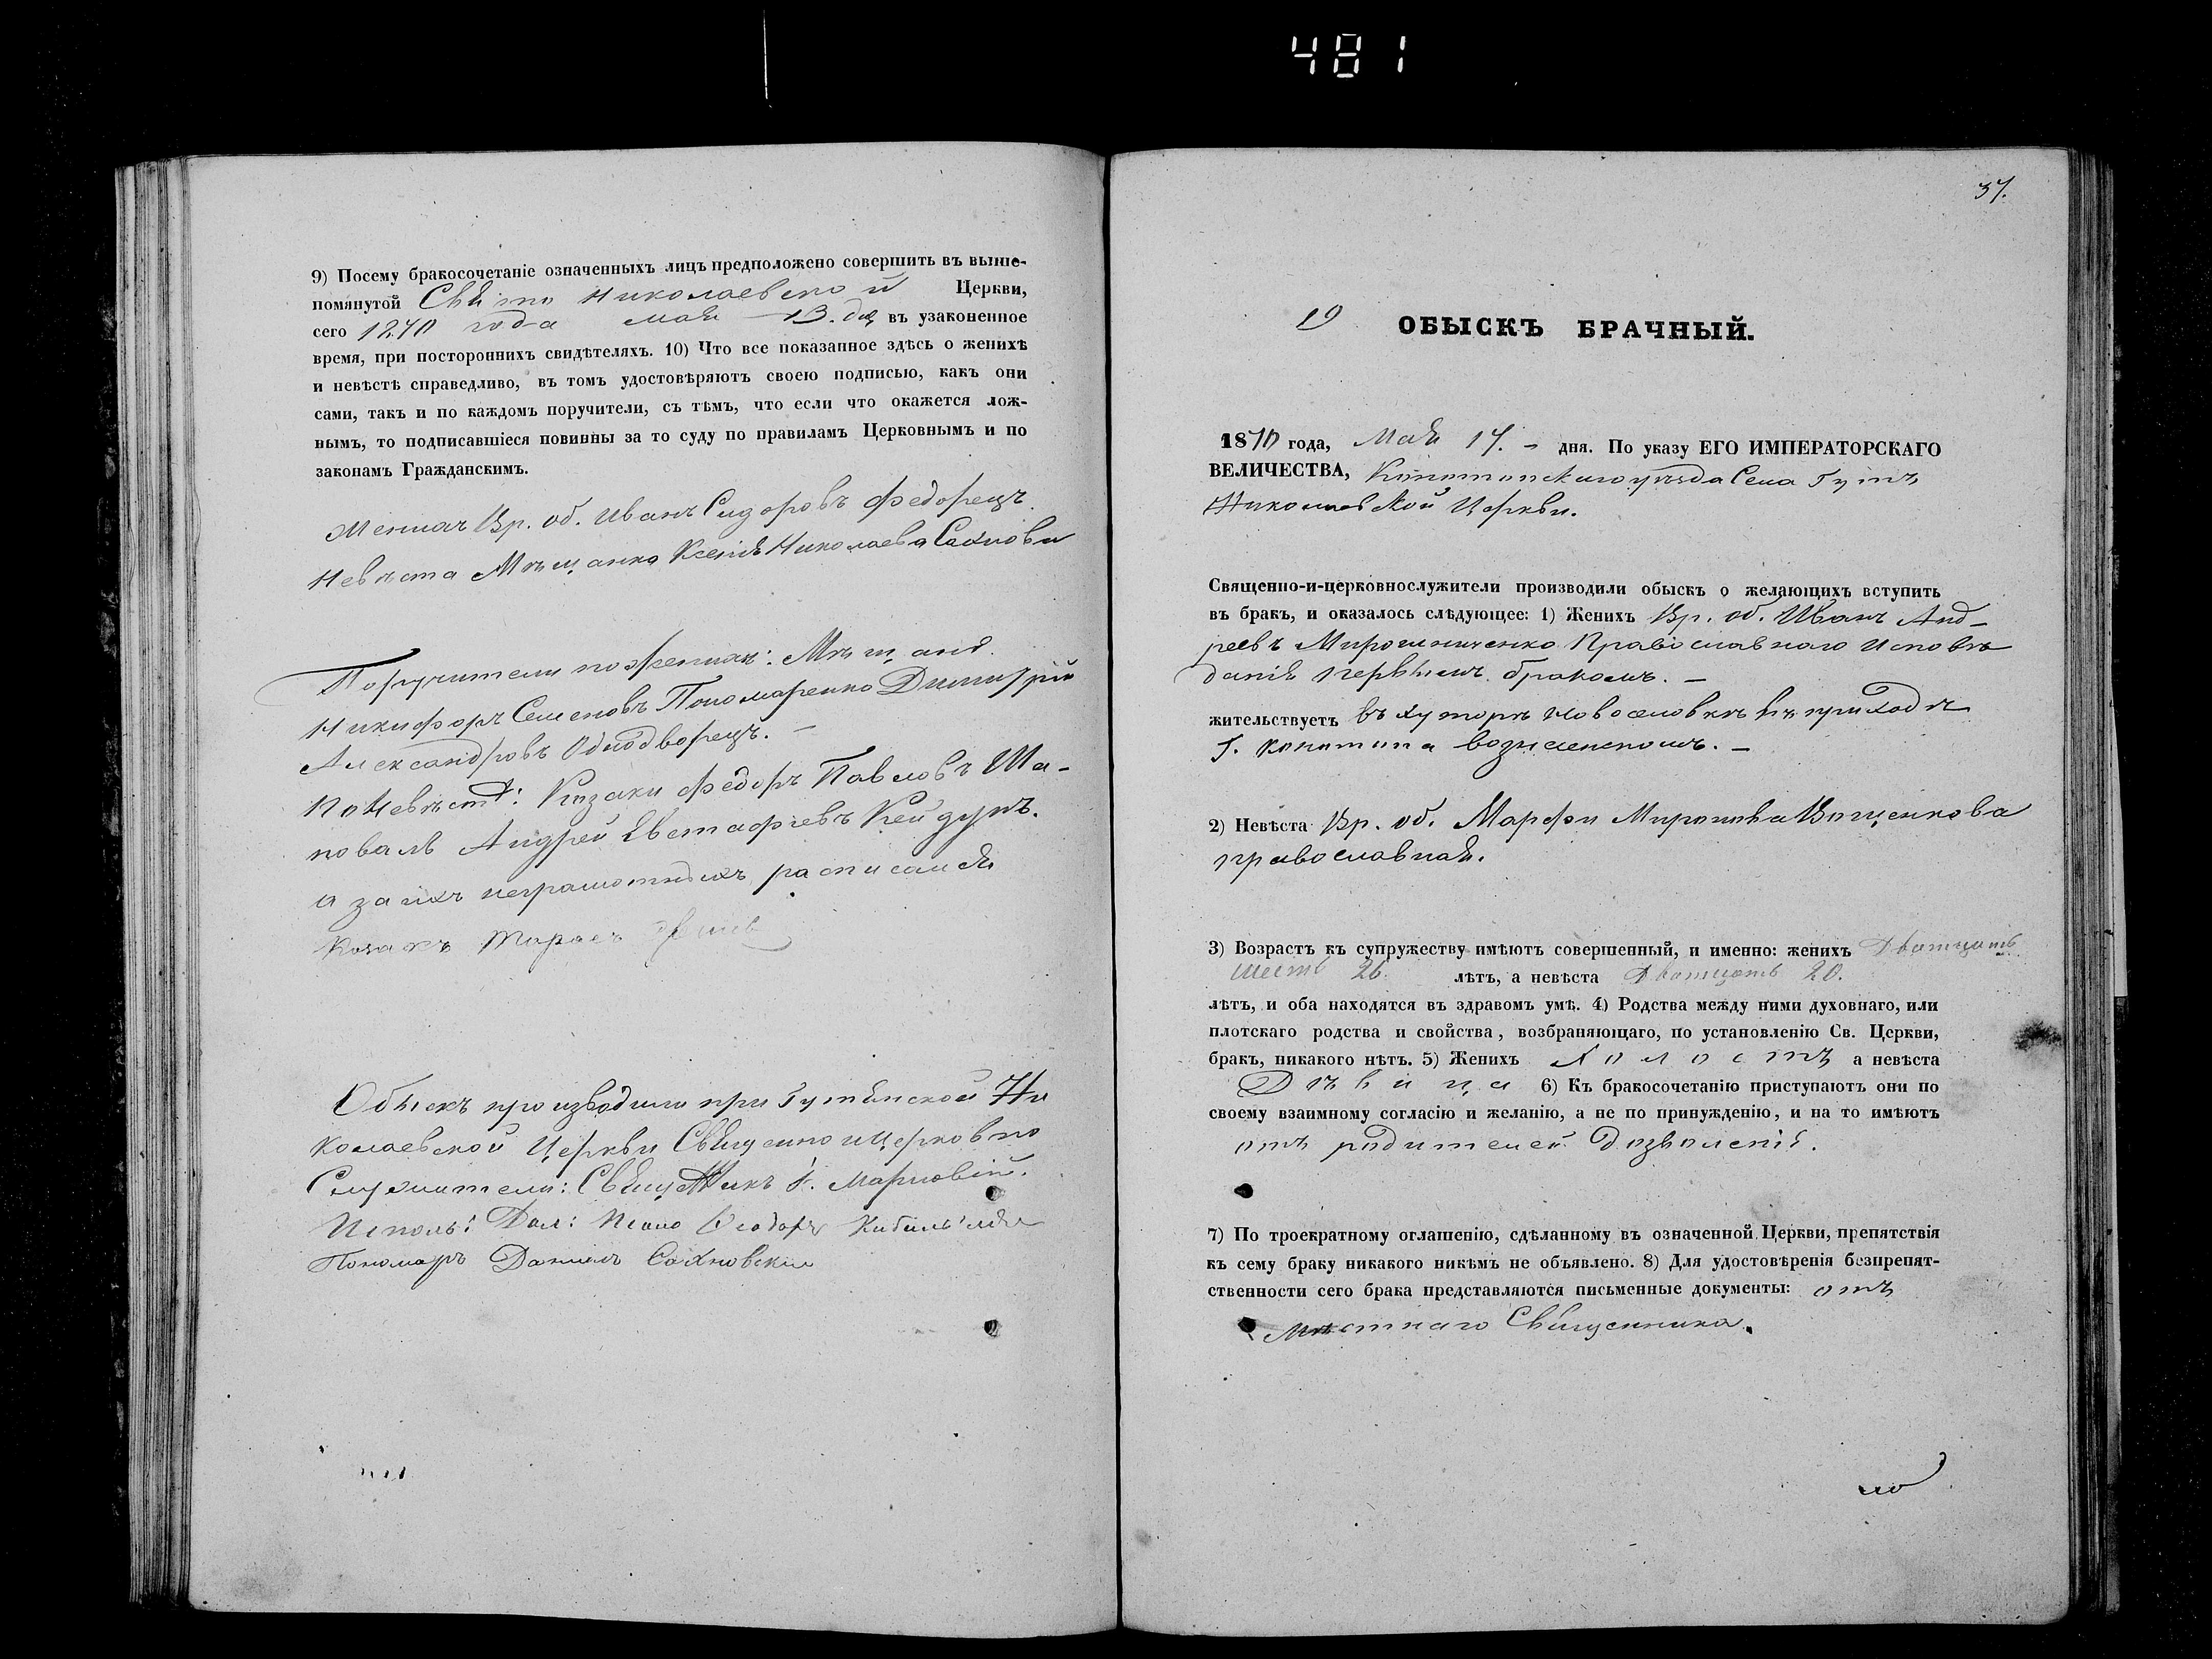 481
9) Посему бракосочетаніе означенныхъ лицъ предположено совершить въ выше-
помянутой Свято Николаевской Церкви,
сего 1870 года мая 13. дня въ узаконенное
время, при постороннихъ свидѣтеляхъ. 10) Что все показанное здѣсь о женихѣ
и невѣстѣ справедливо, въ томъ удостовѣряютъ своею подписью, какъ они
сами, такъ и по каждомъ поручители, съ тѣмъ, что если что окажется лож-
нымъ, то подписавшіеся повинны за то суду по правиламъ Церковнымъ и по
законамъ Гражданскимъ.
Женихъ Вр. об. Иванъ Сидоровъ Федорецъ.
Невѣста Мѣщанка Ксенія Николаева Сахнова
Поручители по женихѣ: Мѣщане
Никифоръ Семеновъ Пономаренко Димитрій
Александровъ Однодворецъ. —
По Невѣстѣ: Козаки Федоръ Павловъ Ша-
повалъ Андрей Евстафіевъ
а за ихъ неграмотныхъ расписался
Козакъ Тарасъ
Обыскъ производили при Гутянской Ни
колаевской Церкви Священно и Церковно
Служители: Священникъ Марковій.
Исполъ: Дол: Псало Ѳеодоръ
Пономаръ Даніилъ Сахновскій
37.
19 ОБЫСКЪ БРАЧНЫЙ.
1870 года, Мая 17. – дня. По указу ЕГО ИМПЕРАТОРСКАГО
ВЕЛИЧЕСТВА, Конотопскаго уѣзда Села Гутъ
Николаевской Церкви.
Священно-и-церковнослужители производили обыскъ о желающихъ вступить
въ бракъ, и оказалось слѣдующее: 1) Женихъ Вр. об. Иванъ Анд-
реевъ Мирошниченко Православнаго Исповѣ
данія первымъ бракомъ. —
жительствуетъ въ хуторѣ Новоселовкѣ въ приходѣ
г. Конотопа Вознесенскомъ. —
2) Невѣста Вр. об. Марфа Миронова Ващенкова
православная.
3) Возрастъ къ супружеству имѣютъ совершенный, и именно: женихъ Дватцать
шесть 26. лѣтъ, а невѣста Дватцать 20.
лѣтъ, и оба находятся въ здравомъ умѣ. 4) Родства между ними духовнаго, или
плотскаго родства и свойства, возбраняющаго, по установленію Св. Церкви,
бракъ, никакого нѣтъ. 5) Женихъ Холостъ а невѣста
Дѣвица 6) Къ бракосочетанію приступаютъ они по
своему взаимному согласію и желанію, а не по принужденію, и на то имѣютъ
отъ родителей дозволенія.
7) По троекратному оглашенію, сдѣланному въ означенной Церкви, препятствія
къ сему браку никакого никѣмъ не объявлено. 8) Для удостовѣренія безпрепят-
ственности сего брака представляются письменные документы: отъ
Мѣстнаго Священника.